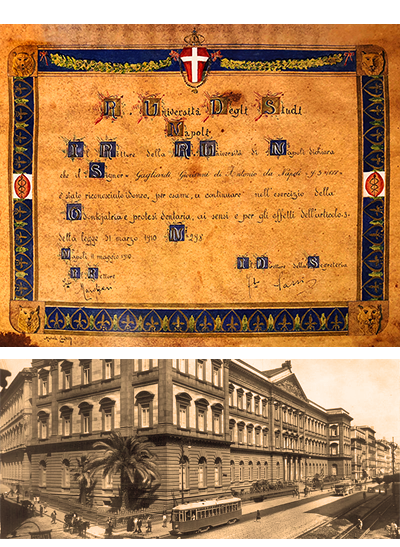 R. Università Degli Studi
Napoli
Il Rettore della R. Università di Napoli dichiara
che il Signor Gagliardi Giovanni di Antonio da Napoli
è stato riconosciuto idoneo, per esame, a continuare nell'esercizio della
Odontojatria e protesi dentaria, ai sensi e per gli effetti dell'articolo
della legge 31 marzo 1930 N. 298
Napoli maggio 1930
Il Rettore Il Direttore della Segreteria